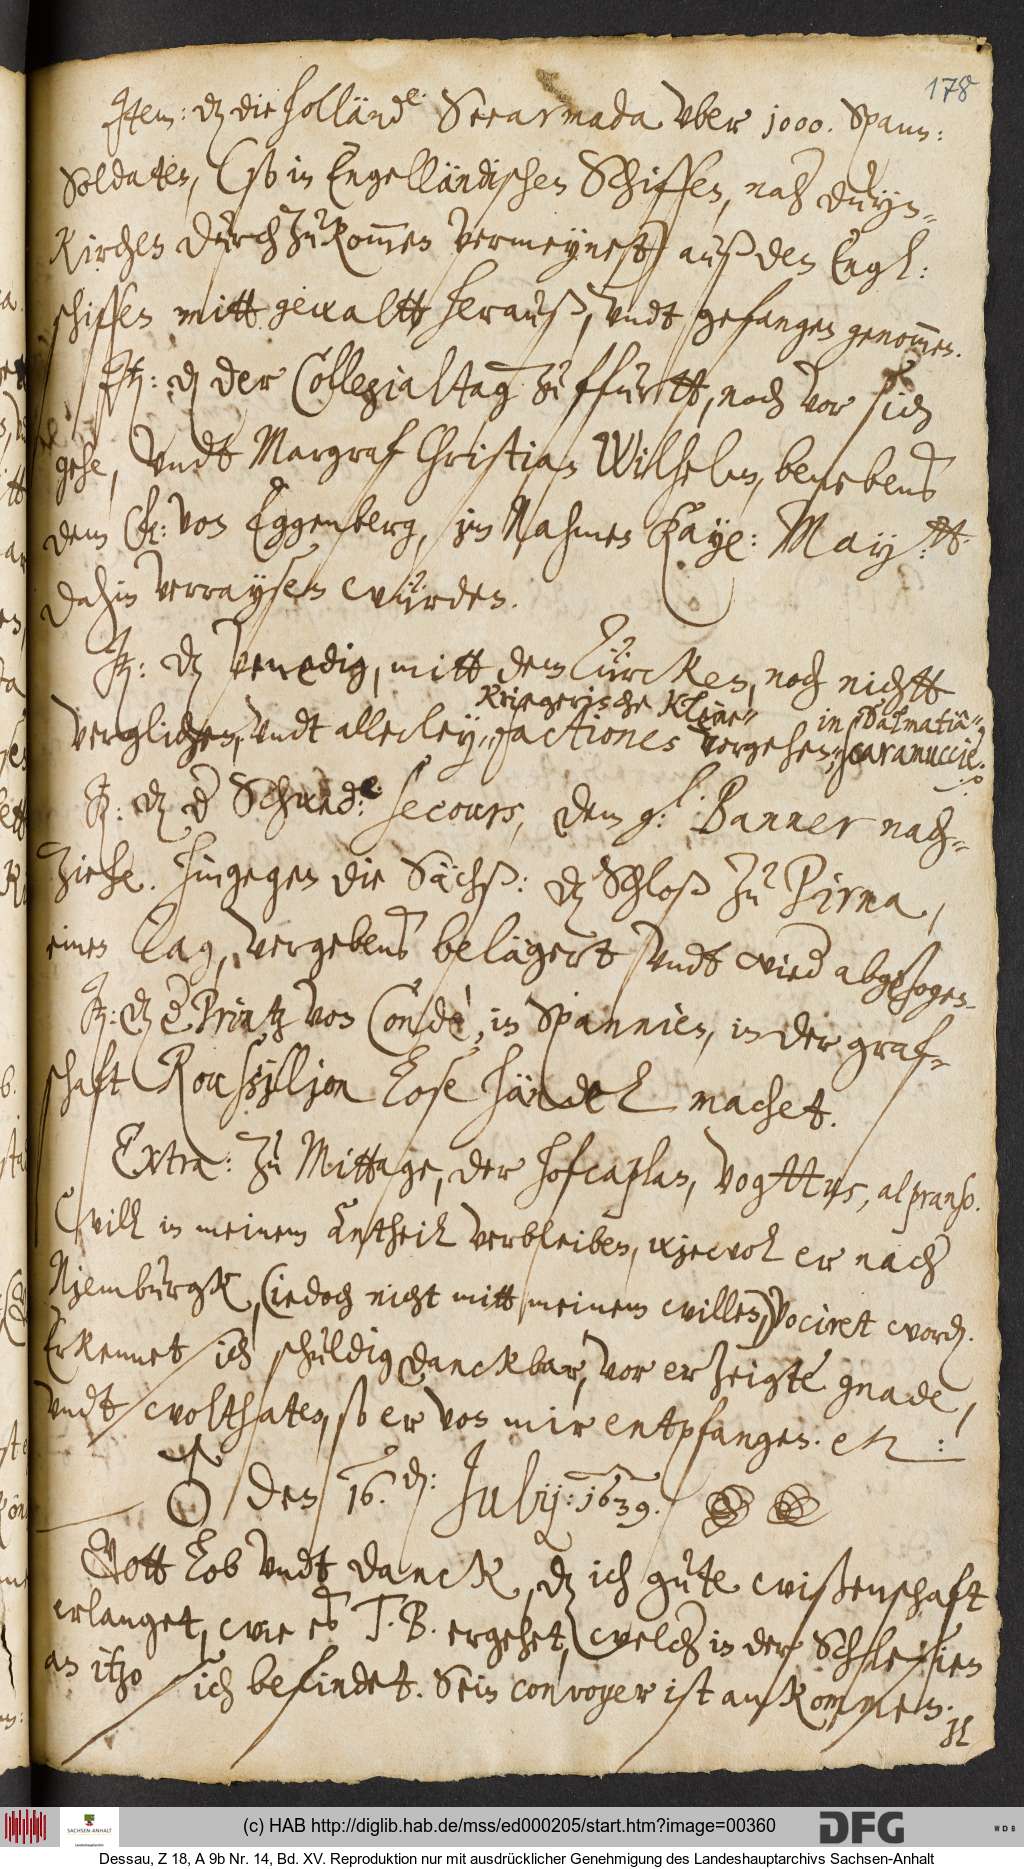 178
Item: dz die Holländ: Seearmada vber 1000. Spann:
Soldaten, (so in Engelländischen Schiffen, nach Duyn-
Kirchen durch zu kommen vermeynet) auß den Engl:
schiffen mitt gewaltt herauß, vndt gefangen genommen.
It: dz der Collegialtag zu ffurtt, noch vor sich
gehe, vndt Margraf Christian Wilhelm, benebens
dem von Eggenberg, im Nahmen Kaye: May:tt.
dahin verraysen würden.
It: dz Venedig, mitt dem Türcken, noch nichtt
Kriegerische Kleine in Dalmatia
verglichen, vndt allerley factiones vorgehen, scaramuccie.
It: dz d Schwed: secours, dem g: Banner nach-
ziehe. Hingegen die Sächß: dz Schloß zu Pirna,
einen Tag, vergebens belägert vndt wied abgezogen.
It: dz d Printz von Condè, in Spannien, in der graf-
schaft Roussillion lose händel machet.
Extra: zu Mittage, der hofcaplan, Vogttus, al pranso.
Will in meinem Antheil verbleiben, wiewol er nach
Niemburgk, (iedoch nicht mitt meinem willen,) vociret word.
Erkennet sich schuldig danckbar, vor erzeigte gnade,
vndt wolthaten, so er von mir entpfangen. etc:
♂ den 16. d: July: 1639.
Gott lob vndt danck, dz ich gute wißenschaft
erlanget, wie es T. B. ergehet, welch in der Schlesien
an itzo sich befindet. Sein convoyer ist ankommen.
Il
(c) HAB http://diglib.hab.de/mss/ed000205/start.htm?image=00360
SACHSEN-ANHALT
DFG
WDB
Dessau, Z 18, A 9b Nr. 14, Bd. XV. Reproduktion nur mit ausdrücklicher Genehmigung des Landeshauptarchivs Sachsen-Anhalt